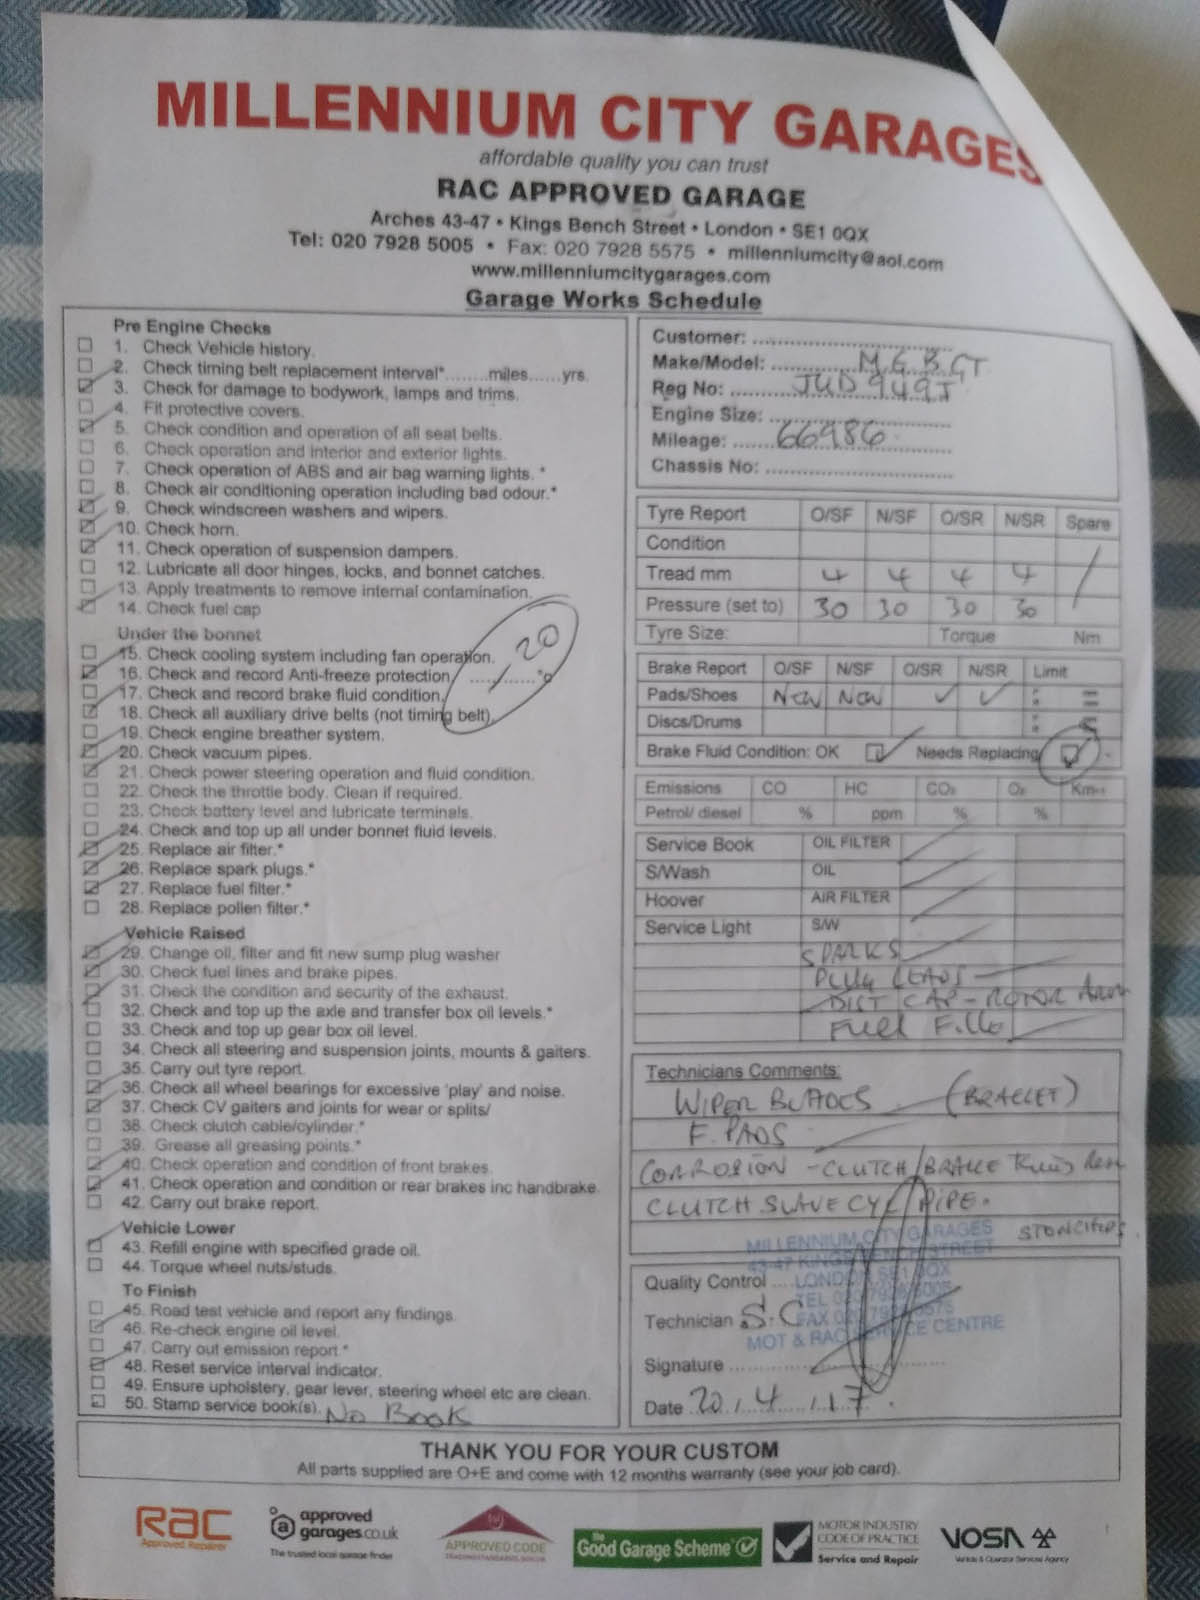 MILLENNIUM CITY GARAGES
affordable quality you can trust
RAC APPROVED GARAGE
Arches 43-47 • Kings Bench Street • London • SE1 0QX
Tel: 020 7928 5005 • Fax: 020 7928 5575 • millenniumcity@aol.com
www.millenniumcitygarages.com
Garage Works Schedule
Pre Engine Checks
1. Check Vehicle history.
2. Check timing belt replacement interval*........miles......yrs.
3. Check for damage to bodywork, lamps and trims.
4. Fit protective covers.
5. Check condition and operation of all seat belts.
6. Check operation and interior and exterior lights.
7. Check operation of ABS and air bag warning lights. *
8. Check air conditioning operation including bad odour.*
9. Check windscreen washers and wipers.
10. Check horn.
11. Check operation of suspension dampers.
12. Lubricate all door hinges, locks, and bonnet catches.
13. Apply treatments to remove internal contamination.
14. Check fuel cap
Under the bonnet
15. Check cooling system including fan operation.
16. Check and record Anti-freeze protection -20 °c
17. Check and record brake fluid condition.
18. Check all auxiliary drive belts (not timing belt).
19. Check engine breather system.
20. Check vacuum pipes.
21. Check power steering operation and fluid condition.
22. Check the throttle body. Clean if required.
23. Check battery level and lubricate terminals.
24. Check and top up all under bonnet fluid levels.
25. Replace air filter.*
26. Replace spark plugs.*
27. Replace fuel filter.*
28. Replace pollen filter.*
Vehicle Raised
29. Change oil, filter and fit new sump plug washer
30. Check fuel lines and brake pipes.
31. Check the condition and security of the exhaust.
32. Check and top up the axle and transfer box oil levels.*
33. Check and top up gear box oil level.
34. Check all steering and suspension joints, mounts & gaiters.
35. Carry out tyre report.
36. Check all wheel bearings for excessive 'play' and noise.
37. Check CV gaiters and joints for wear or splits/
38. Check clutch cable/cylinder.*
39. Grease all greasing points.*
40. Check operation and condition of front brakes.
41. Check operation and condition or rear brakes inc handbrake.
42. Carry out brake report.
Vehicle Lower
43. Refill engine with specified grade oil.
44. Torque wheel nuts/studs.
To Finish
45. Road test vehicle and report any findings.
46. Re-check engine oil level.
47. Carry out emission report.*
48. Reset service interval indicator.
49. Ensure upholstery, gear lever, steering wheel etc are clean.
50. Stamp service book(s). No Book
Customer:
Make/Model: M.G.B GT
Reg No: JUD 949J
Engine Size:
Mileage: 66986
Chassis No:
Tyre Report O/SF N/SF O/SR N/SR Spare
Condition
Tread mm 4 4 4 4
Pressure (set to) 30 30 30 30
Tyre Size: Torque Nm
Brake Report O/SF N/SF O/SR N/SR Limit
Pads/Shoes New New
Discs/Drums
Brake Fluid Condition: OK Needs Replacing
Emissions CO HC CO₂ O₂
Petrol/ diesel % ppm % %
Service Book OIL FILTER
S/Wash OIL
Hoover AIR FILTER
Service Light S/W
SPARKS
PLUG LEADS
DIST CAP - ROTOR ARM
Fuel Filter
Technicians Comments:
WIPER BLADES (BRACKET)
F. PADS
CORROSION - CLUTCH/BRAKE
CLUTCH SLAVE CYL/PIPE.
MILLENNIUM CITY GARAGES
43-47 KINGS BENCH STREET
LONDON SE1 0QX
TEL 020 7928 5005
FAX 020 7928 5575
MOT & RAC SERVICE CENTRE
Quality Control
Technician S.C
Signature
Date 20.4.17
THANK YOU FOR YOUR CUSTOM
All parts supplied are O+E and come with 12 months warranty (see your job card).
RAC
Approved Repairer
approved
garages.co.uk
The trusted local garage finder
APPROVED CODE
TRADINGSTANDARDS.GOV.UK
the
Good Garage Scheme
MOTOR INDUSTRY
CODE OF PRACTICE
Service and Repair
VOSA
Vehicle & Operator Services Agency